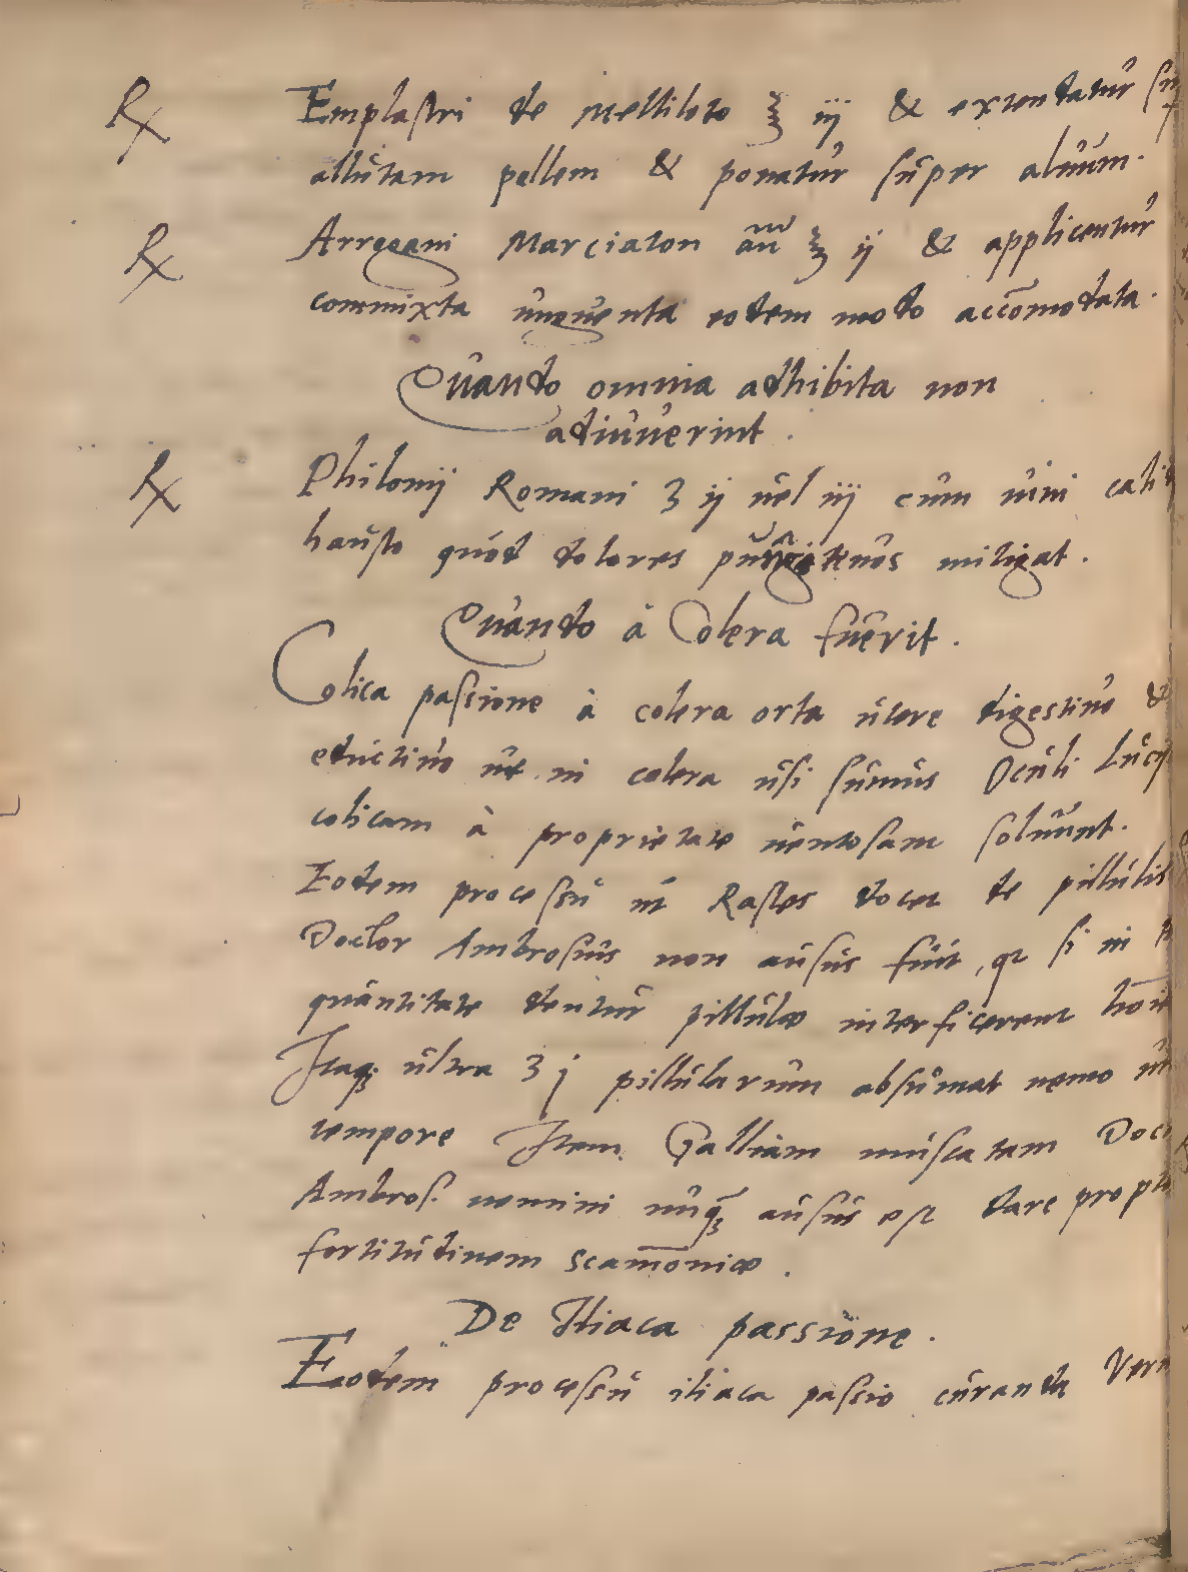 ℞ Emplastri de Melliloto ℥ iij & extendatur sup
allutam pellem & ponatur super aluum.
℞ Arregani Marciaton an ℥ ij & applicentur
commixta unguenta eodem modo accomodata.
Quando omnia adhibita non
adiuuerint.
℞ Philonij Romani ʒ ij uel iij cum uini calid
hausto quod dolores mitigat.
Quando à Colera fuerit.
Colica passione à colera orta utere digestiuo &
eductiuo ut in colera usi sumus Oculi Lucij
colicam à proprietate uentosam soluunt.
Eodem processu ut Rasies docet de pillulis
Doctor Ambrosius non ausus fuit, qz si in
quantitate dentur pillulæ interficerent hōi
Itaqz ultra ʒ j pillularum absumat nemo un
tempore Item Galliam muscatam Doct
Ambros. nemini nuqz ausus est dare propte
fortitudinem scamōniæ.
De Iliaca passione.
Eodem processu iliaca passio curanda Veru